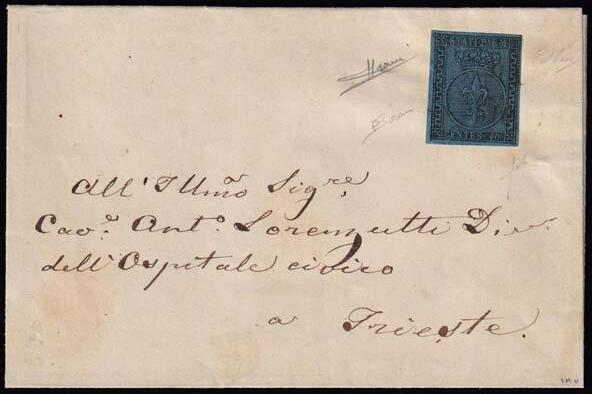 STATI PARM.
CENTES. 40
All' Illmo Sigre
Cavo. Anto. Lorenzutti Dir.
dell'Ospitale civico
a Trieste.